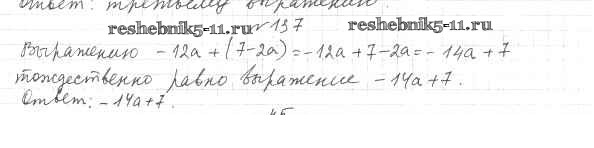 Ответ: третьему выражению.
reshebnik5-11.ru № 137 reshebnik5-11.ru
Выражению - 12a + (7-2a) = -12a + 7 - 2a = - 14a + 7
тождественно равно выражение - 14a + 7.
Ответ: - 14a + 7.